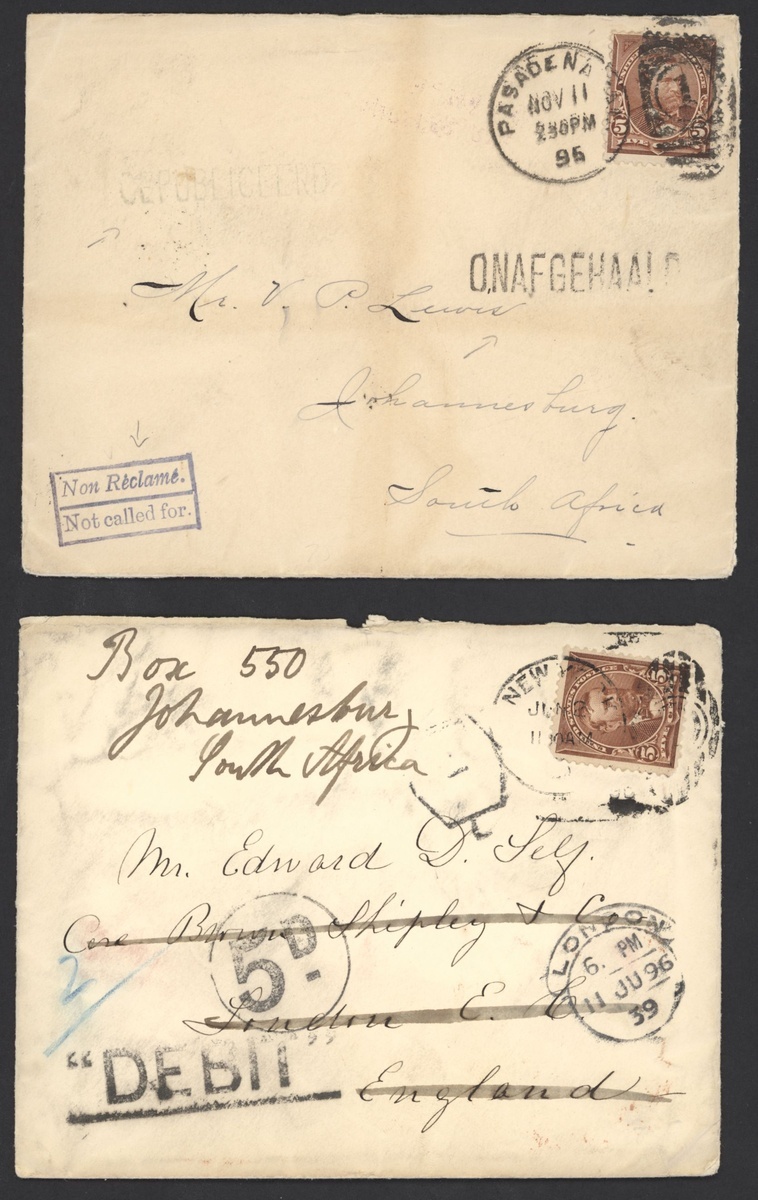 PASADENA
NOV 11
230PM
95
5 5
GEPUBLICEERD
ONAFGEHAALD
Mr. V. P. Lewis
Johannesburg.
South Africa
Non Réclamé.
Not called for.
Box 550
Johannesburg
South Africa
NEW Y
JUN 2
11 30AM
Mr. Edward D. Self.
Care Brown Shipley & Co
London E. C.
England
5D.
2
"DEBIT"
LONDON
6. PM
11 JU 96
39